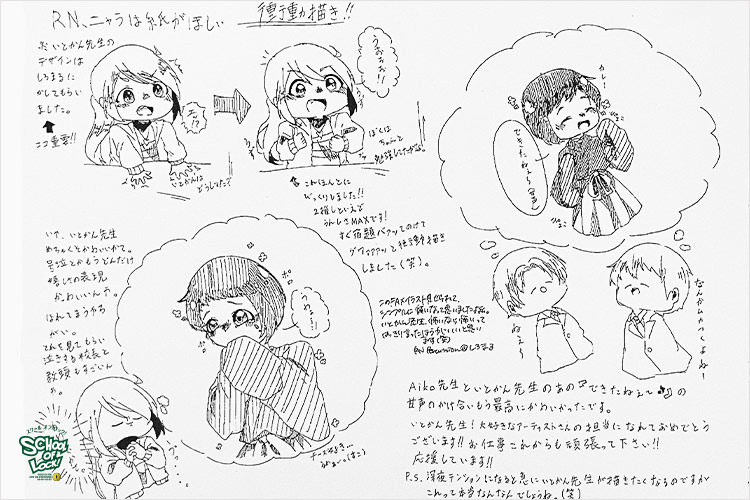 RN、ニャラは紙がほしい
衝動描き!!
先生の
デザインは
しろまるに
かしてもらい
ました。
ココ重要!!
えっ!?
いとかんは
どうしてた?
うおぉぉ!!
ぼくは
ちゃんと
勉強してたがな。
これほんとに
びっくりしました!!
2推しといえど
うれしさMAXです!
すぐ宿題バアッてのけて
衝動描き
しました(笑)。
カレー
できたねぇ〜
いや、いとかん先生
めちゃくちゃかわいかて。
号泣とかもうどんだけ
嬉しさの表現
かわいいんや。
ほんでまうやろ
がい。
それを見てもらい
泣きする校長と
教頭もすごいん
ポロ
うわぁー!!
このFAXイラスト見せられて、
シンプルに
いとかん先生、怖いなら怖いって
はっきり言ったほうがいいと思い
ます(笑)
ねぇ〜
なんかムカつくよね〜
Aiko先生といとかん先生のあの『できたねぇ〜』
の甘声のかけ合いもう最高にかわいかったです。
いとかん先生!大好きなアーティストさんの担当になれておめでとう
ございます!!お仕事これからも頑張って下さい!!
応援しています!!
P.S.深夜テンションになると急にいとかん先生が描きたくなるのですが
これって本当なんなんでしょうね。(笑)
スクール・オブ・ロック!
SCHOOL
OF
LOCK!